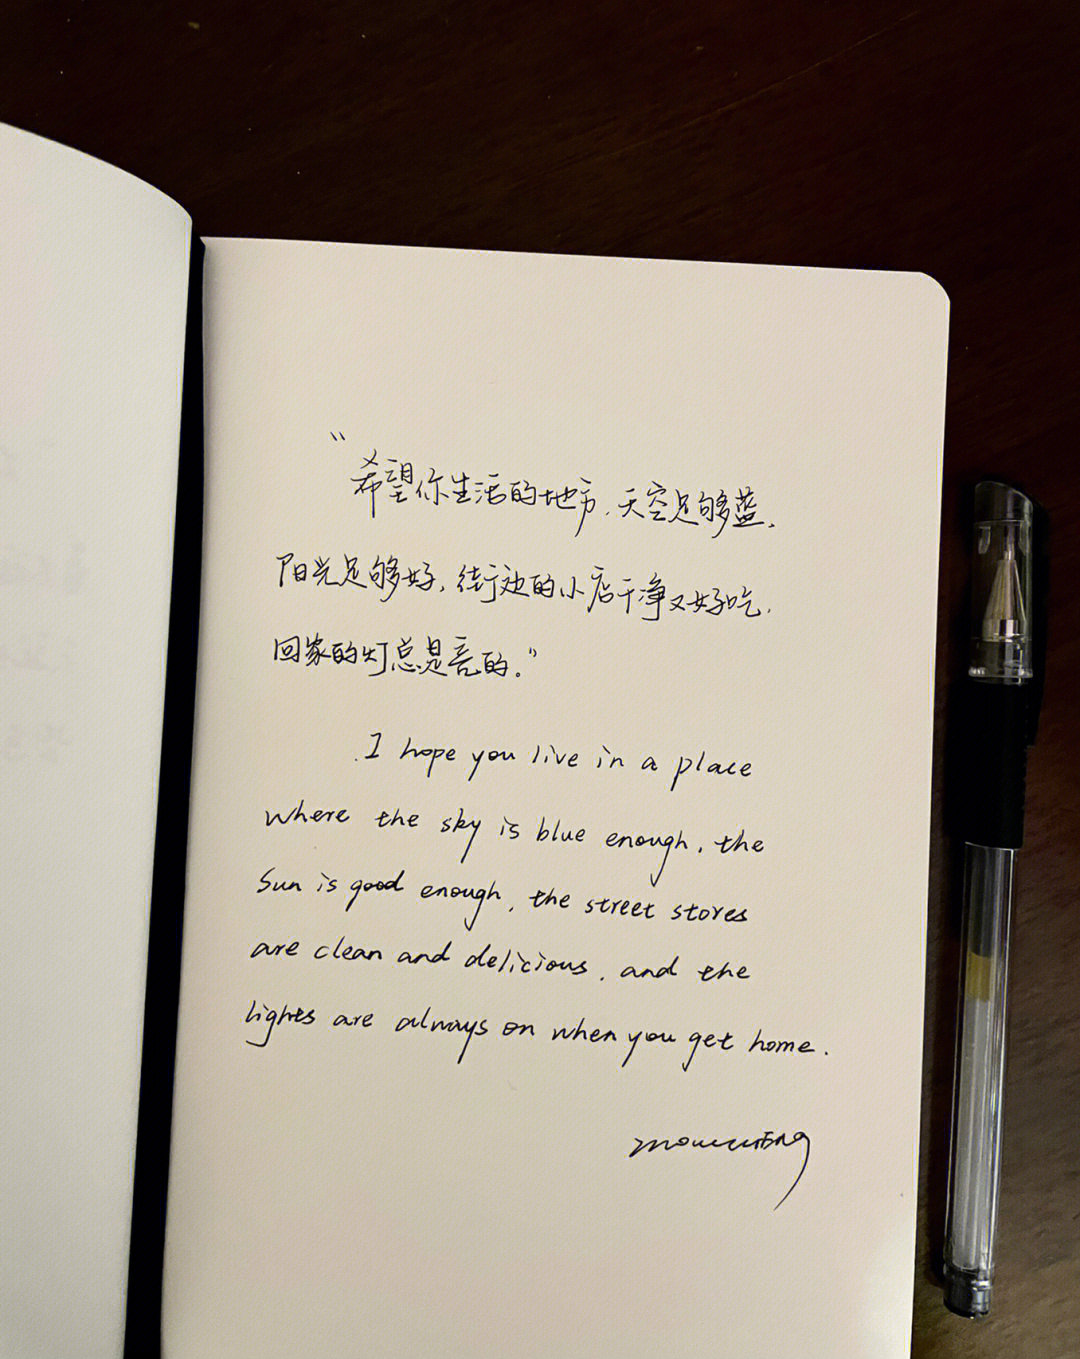 “希望你生活的地方,天空足够蓝,
阳光足够好,街边的小店干净又好吃,
回家的灯总是亮的。”
I hope you live in a place
where the sky is blue enough, the
Sun is good enough, the street stores
are clean and delicious, and the
lights are always on when you get home.